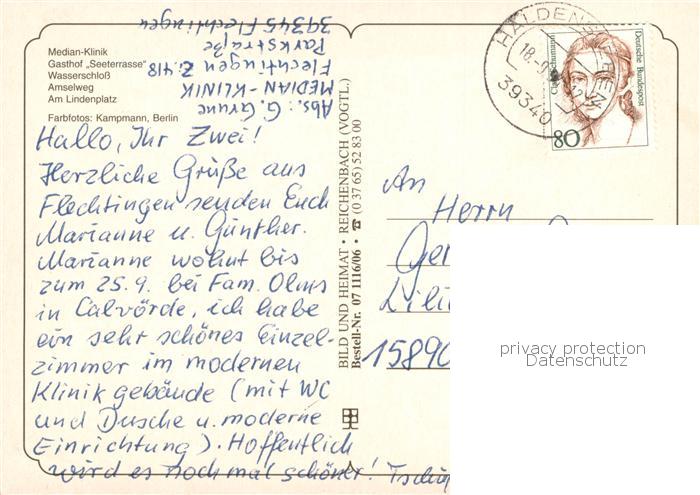 Median-Klinik
Gasthof „Seeterrasse"
Wasserschloß
Amselweg
Am Lindenplatz
Farbfotos: Kampmann, Berlin
Abs.: G. Grune
MEDIAN-KLINIK
Flechtingen Z. 418
Parkstraße
39345 Flechtingen
Hallo, Ihr Zwei!
Herzliche Grüße aus
Flechtingen senden Euch
Marianne u. Günther.
Marianne wohnt bis
zum 25.9. bei Fam. Olms
in Calvörde, ich habe
ein sehr schönes Einzel-
zimmer im modernen
Klinikgebäude (mit WC
und Dusche u. moderne
Einrichtung). Hoffentlich
wird es noch mal schöner! Tschü
BILD UND HEIMAT · REICHENBACH (VOGTL.)
Bestell-Nr. 07 1116/06 · ☎ (0 37 65) 52 83 00
HALDENSLEBEN
39340
Deutsche Bundespost
Clara Schumann
80
An
Herrn
Ge
Lili
15890
privacy protection
Datenschutz